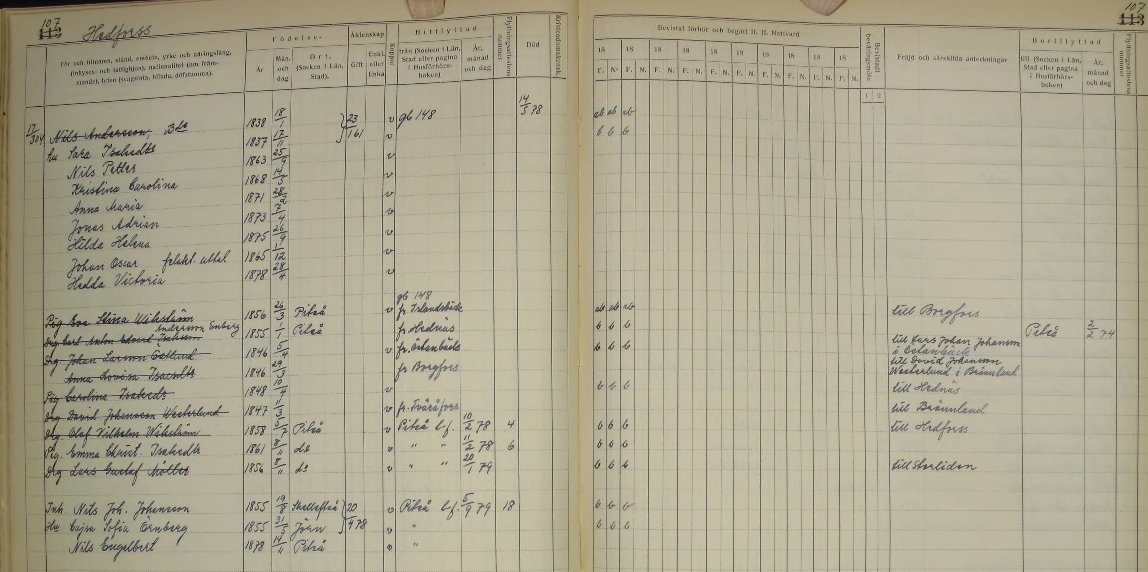 107
113
Hedforss
107
113
För- och tillnamn, stånd, embete, yrke och näringsfång,
(inhyses- och fattighjon), nationalitet (om främ-
mande), lyten (svagsynta, blinda, döfstumma).
Födelse-
År
Mån.
och
dag
Ort.
(Socken i Län,
Stad).
Äktenskap
Gift
Enkl.
eller
Enka
Koppor
Hitflyttad
från (Socken i Län,
Stad eller pagina
i Husförhörs-
boken)
År,
månad
och dag
Flyttningsattestens
nummer
Död
Bevistat förhör och begått H. H. Nattvard
18 18 18 18 18 18 18 18 18 18
F. N. F. N. F. N. F. N. F. N. F. N. F. N. F. N. F. N. F. N.
1 2
Fräjd och särskilda anteckningar
Bortflyttad
till (Socken i Län,
Stad eller pagina
i Husförhörs-
boken)
År,
månad
och dag
Flyttningsattestens
nummer
17/304 Nils Andersson, Bde 1838 18/1 23 v gb 148 14/5 78 ab ab ab
hu Sara Isaksdtr 1837 17/11 161 v b b b
Nils Petter 1863 25/9 v
Kristina Carolina 1868 14/5 v
Anna Maria 1871 28/2 v
Jonas Adrian 1873 7/4 v
Hilda Helena 1875 26/9 v
Johan Oscar felakt. uttal 1865 1/12 v
Hedda Victoria 1878 28/4 v
gb 148
Pig Eva Stina Wikström 1856 26/3 Piteå v fr Islandsbäck ab ab ab till Borgfors
Andersson Enberg
1855 1/1 Piteå fr Hednäs b b b Piteå 2/2 74
Drg Johan Larsson Östlund 1846 5/4 v fr Östanbäck b b b till Lars Johan Johansson
i Östanbäck
Anna Lovisa Isaksdtr 1846 29/3 fr Borgfors till David Johansson
Westerlund i Brännland
Pig Carolina Isaksdr 1848 10/4 v b b b till Hednäs
Drg David Johansson Westerlund 1847 11/3 v fr. Tvåråfors till Brännland
Drg Olof Vilhelm Wikström 1858 5/7 Piteå v Piteå lf. 10/2 78 4 b b b till Hedforss
Pig. Emma Christ. Isaksdtr 1861 8/11 do v " " 11/2 78 6 b b b
Drg Lars Gustaf Möller 1856 8/11 do v " " 20/1 79 b b b till Storliden
Inh. Nils Joh. Johansson 1855 19/8 Skellefteå 20 v Piteå lf. 5/9 79 18 b b b
Hu Cajsa Sofia Örnberg 1855 31/5 Jörn 4 78 v " b b b
Nils Engelbert 1878 14/11 Piteå v "